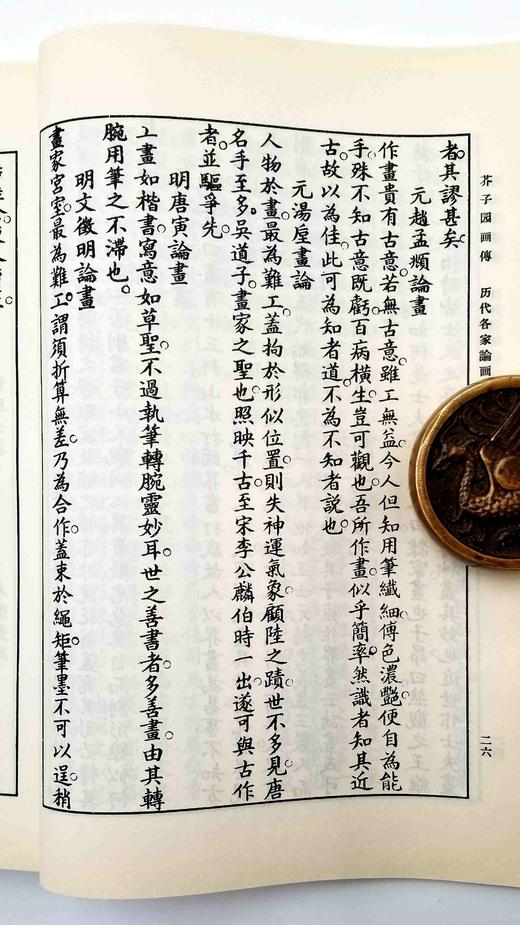 芥子园画傳 历代各家論画
二六
者。其謬甚矣。
元趙孟頫論畫
作畫貴有古意。若無古意。雖工無益。今人但知用筆纖細。傅色濃艷。便自為能
手。殊不知古意既虧。百病橫生。豈可觀也。吾所作畫。似乎簡率。然識者知其近
古。故以為佳。此可為知者道。不為不知者說也。
元湯垕畫論
人物於畫。最為難工。蓋拘於形似位置。則失神運氣象。顧陸之蹟。世不多見。唐
名手至多。吳道子畫家之聖也。照映千古。至宋李公麟伯時一出。遂可與古作
者。並驅爭先。
明唐寅論畫
工畫如楷書。寫意如草聖。不過執筆轉腕靈妙耳。世之善書者。多善畫。由其轉
腕用筆之不滯也。
明文徵明論畫
畫家宮室。最為難工。謂須折算無差。乃為合作。蓋束於繩矩。筆墨不可以逞。稍